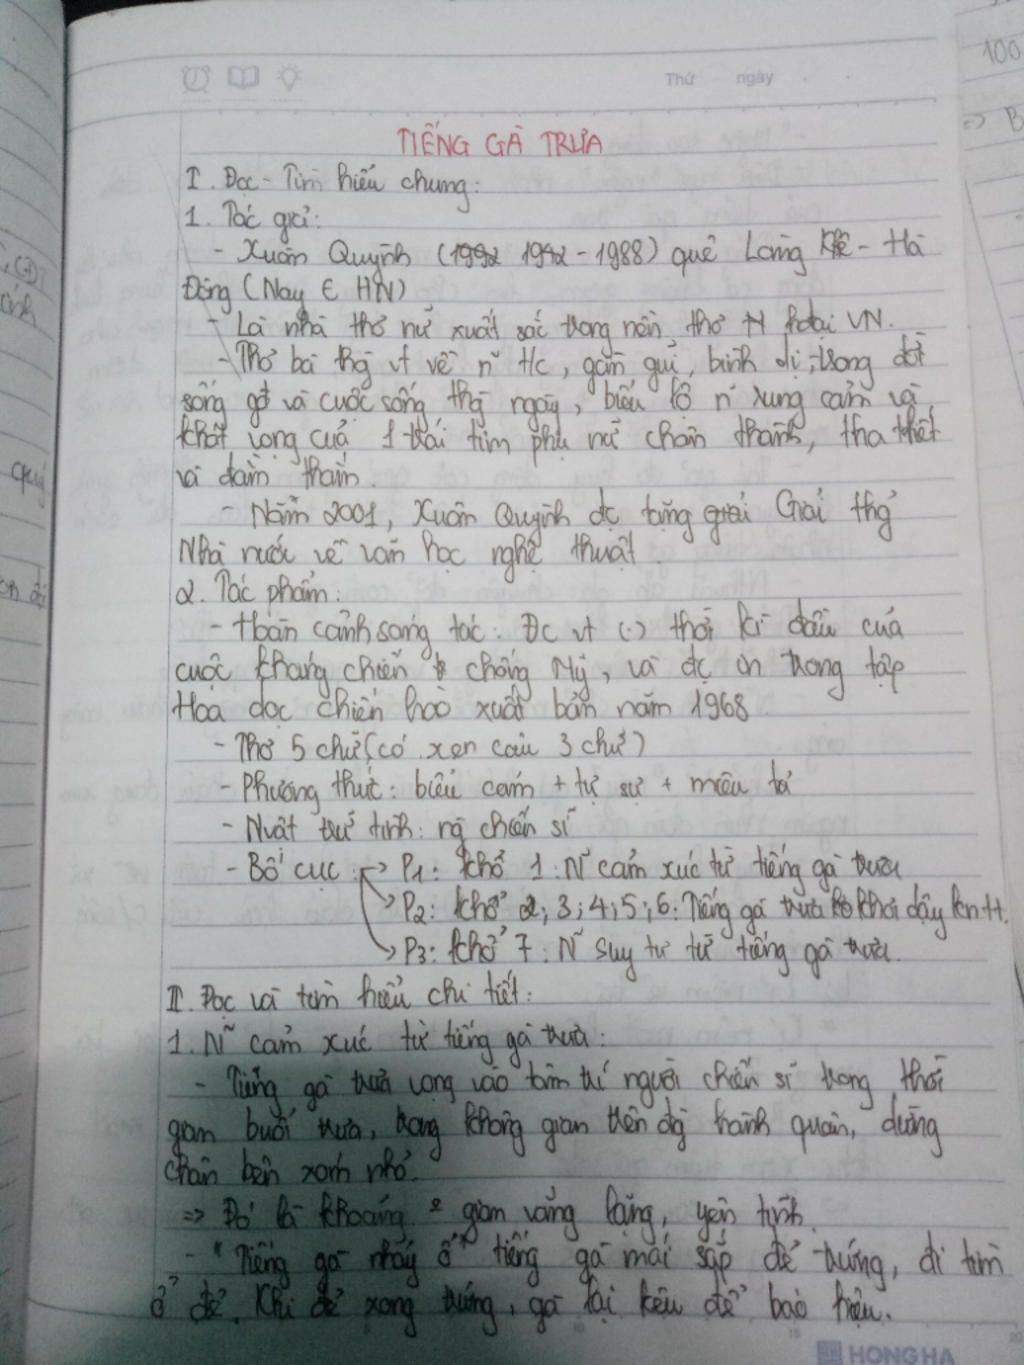 Thứ ngày
TIẾNG GÀ TRƯA
I. Đọc - Tìm hiểu chung:
1. Tác giả:
- Xuân Quỳnh (1992 1942 - 1988) quê Làng Khê - Hà
Đông (Nay ∈ HN)
- Là nhà thơ nữ xuất sắc trong nền thơ H hđại VN.
- Thơ bà thg vt về n~ t/c, gần gũi, bình dị, trong đời
sống gđ và cuộc sống thg ngày, biểu lộ n~ rung cảm và
khát vọng của 1 trái tim phụ nữ chân thành, tha thiết
và đằm thắm.
- Năm 2001, Xuân Quỳnh đc tặng giải Giải thg
Nhà nước về văn học nghệ thuật.
2. Tác phẩm:
- Hoàn cảnh sáng tác: Đc vt (.) thời kì đầu của
cuộc kháng chiến chống Mỹ, và đc in trong tập
Hoa dọc chiến hào xuất bản năm 1968
- Thơ 5 chữ (có xen câu 3 chữ)
- Phương thức: biểu cảm + tự sự + miêu tả
- Nvật trữ tình: ng chiến sĩ
- Bố cục: → P1: khổ 1: N~ cảm xúc từ tiếng gà trưa
→ P2: khổ 2; 3; 4; 5; 6: Tiếng gà trưa khơi dậy kn tt.
→ P3: khổ 7: N~ suy tư từ tiếng gà trưa.
II. Đọc và tìm hiểu chi tiết:
1. N~ cảm xúc từ tiếng gà trưa:
- Tiếng gà trưa vọng vào tâm trí người chiến sĩ trong thời
gian buổi trưa, trong không gian trên đg hành quân, dừng
chân bên xóm nhỏ.
=> Đó là khoảng o gian vắng lặng, yên tĩnh.
- "Tiếng gà nhảy ổ" tiếng gà mái sắp đẻ trứng, đi tìm
ổ đẻ. Khi đẻ xong trứng, gà lại kêu để báo hiệu.
HONG HA
100
=> B
quý